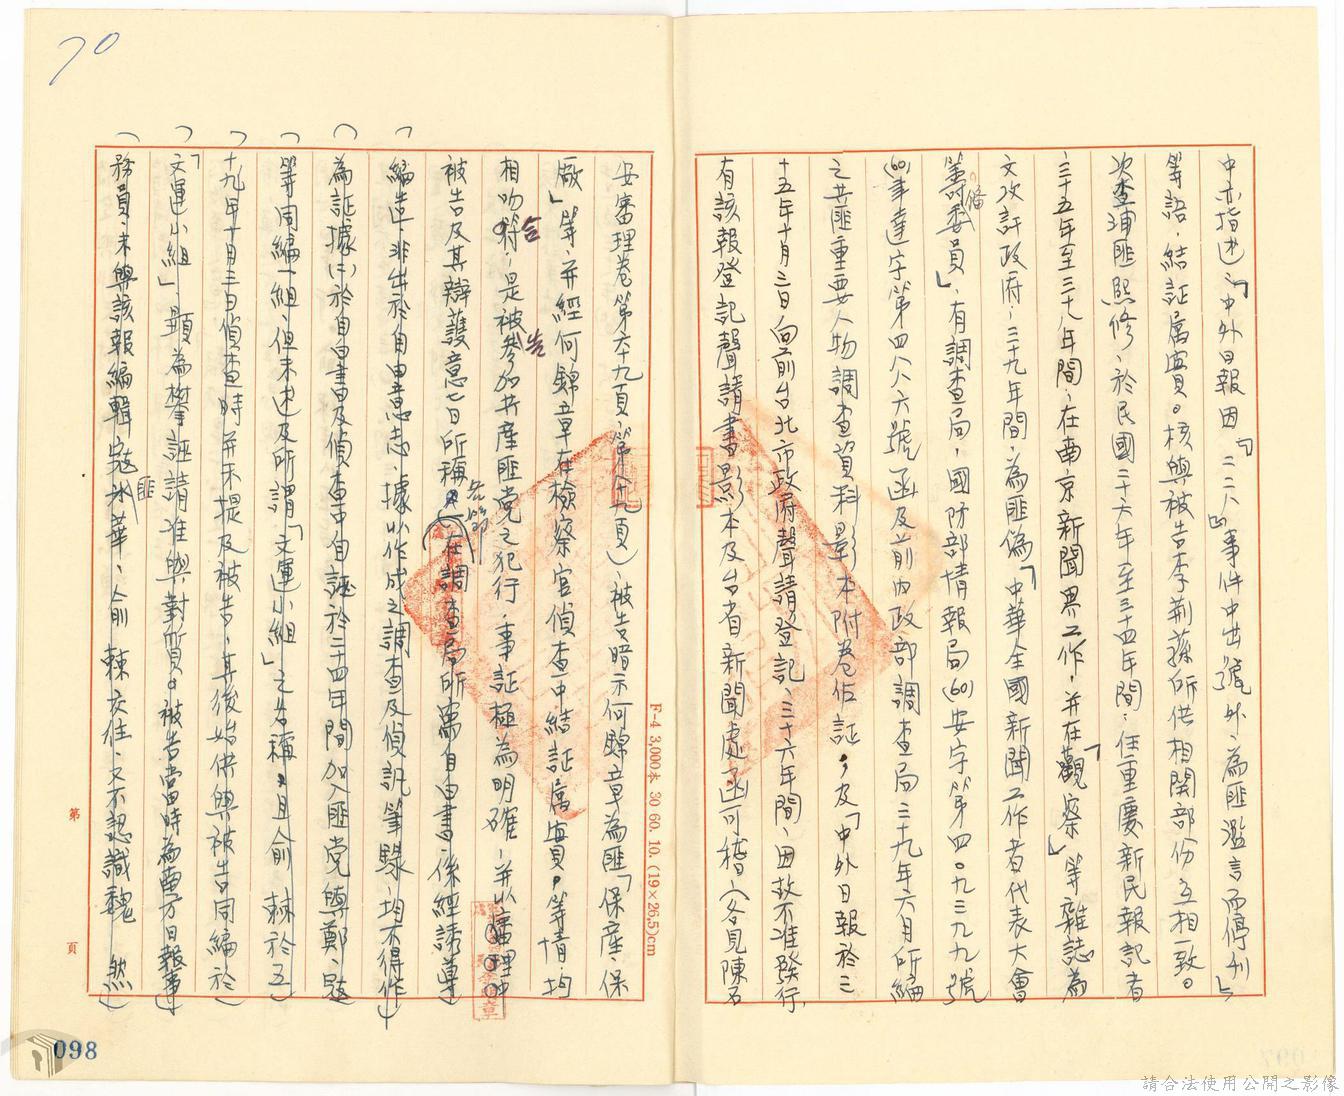 中亦指述:「中外日報因『二二八』事件中出號外、為匪濫言而停刋」
等語,結証屬實。核與被告李荆蓀所供相関部份互相一致。
次查浦匪熙修、於民國二十六年至三十四年間、任重慶新民報記者
三十五年至三十八年間、在南京新聞界工作,并在「觀察」等雜誌為
文攻訐政府,三十九年間,為匪偽「中華全國新聞工作者代表大會
籌備委員」、有調查局,國防部情報局(60)安字第四〇九三九九號
(60)事達字第四八六號函及前內政部調查局三十九年六月所編
之共匪重要人物調查資料影本附卷佐証,及「中外日報於三
十五年十月三日向前台北市政府聲請登記、三十六年間、因故不准發行,
有該報登記聲請書影本及台省新聞處函可稽(各見陳石
安審理卷第六十九頁、第八十九頁)、被告暗示何錦章為匪「保產、保
廠」等、并經何錦章在檢察官偵查中結証屬實。等情,均
相吻合,是被告參加共產匪党之犯行,事証極為明確,并以審理中
被告及其辯護意旨所稱(一)在調查局所寫自由書,係經誘導
編造,非出於自由意志,據以作成之調查及偵訊筆錄,均不得作
為証據(二)於自由書及偵查中自誣於二十四年間加入匪党與鄭、
等同編一組,但未述及所謂「文運小組」之名稱,且俞棘於五
十九年十月三日偵查時并未提及被告,其後始供與被告同編於
「文運小組」,顯為攀誣請准與對質。被告當時為南方日報事
務員,未與該報編輯寇匪冰華、俞棘交往,又不認識魏 然
70
F-4 3,000本 30 60. 10. (19×26.5)cm
第 頁
098
請合法使用公開之影像